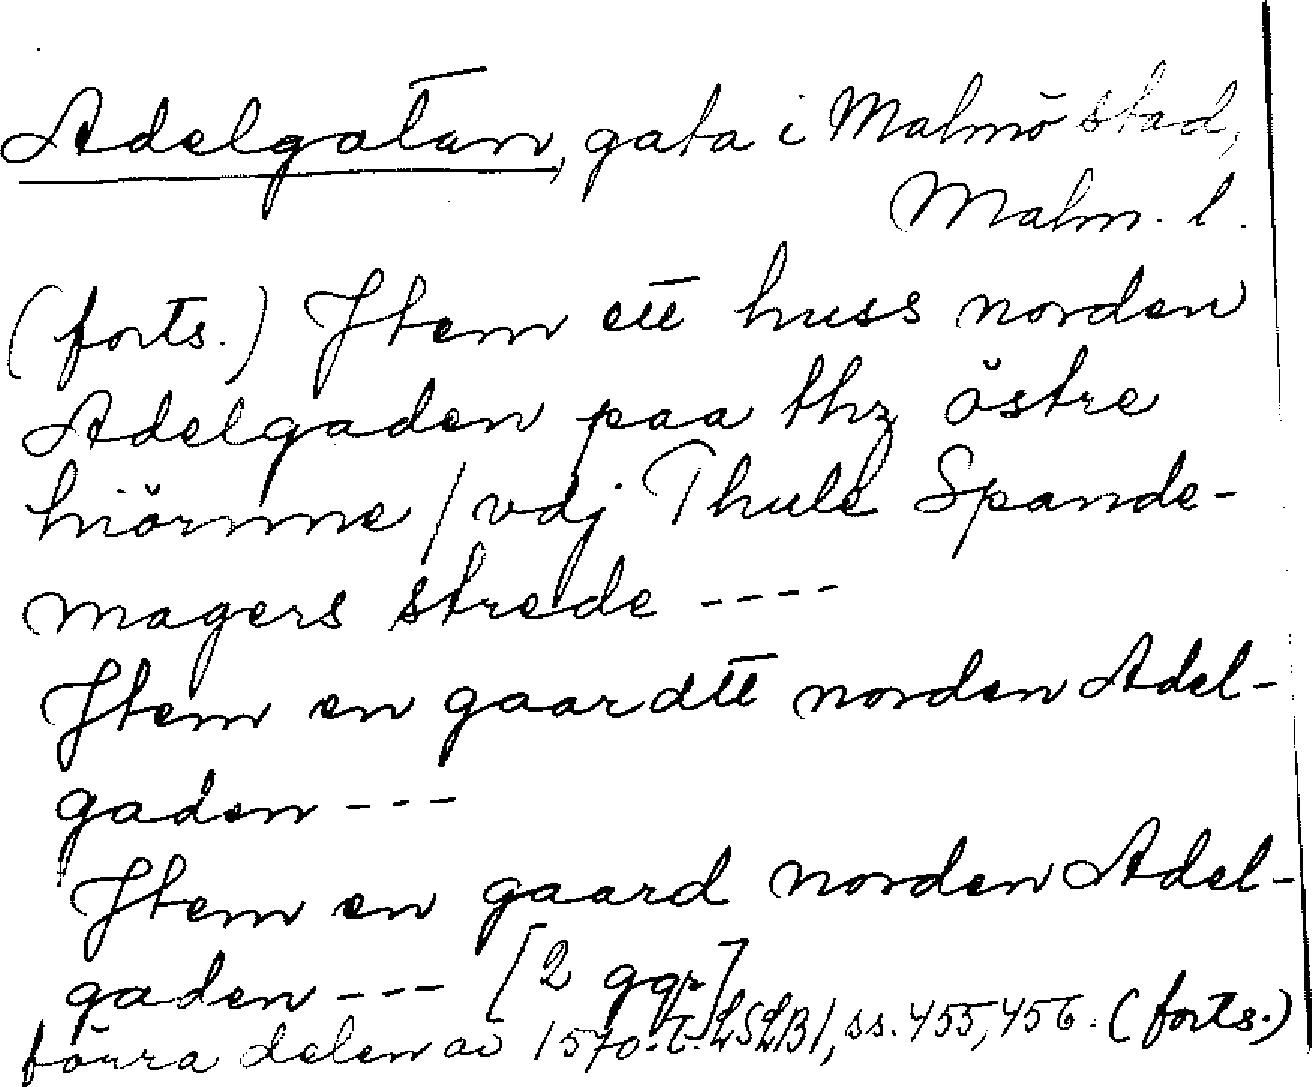 Adelgatan, gata i Malmö stad,
Malm. l.
(forts.) Jtem ett huss norden
Adelgaden paa thz östre
hiörnne / vdj Thule Spande-
magers strede ----
Jtem en gaardtt norden Adel-
gaden ---
Jtem en gaard norden Adel-
gaden --- [2 ggr]
förra delen av 1570-t. LSLB1, ss. 455, 456. (forts.)